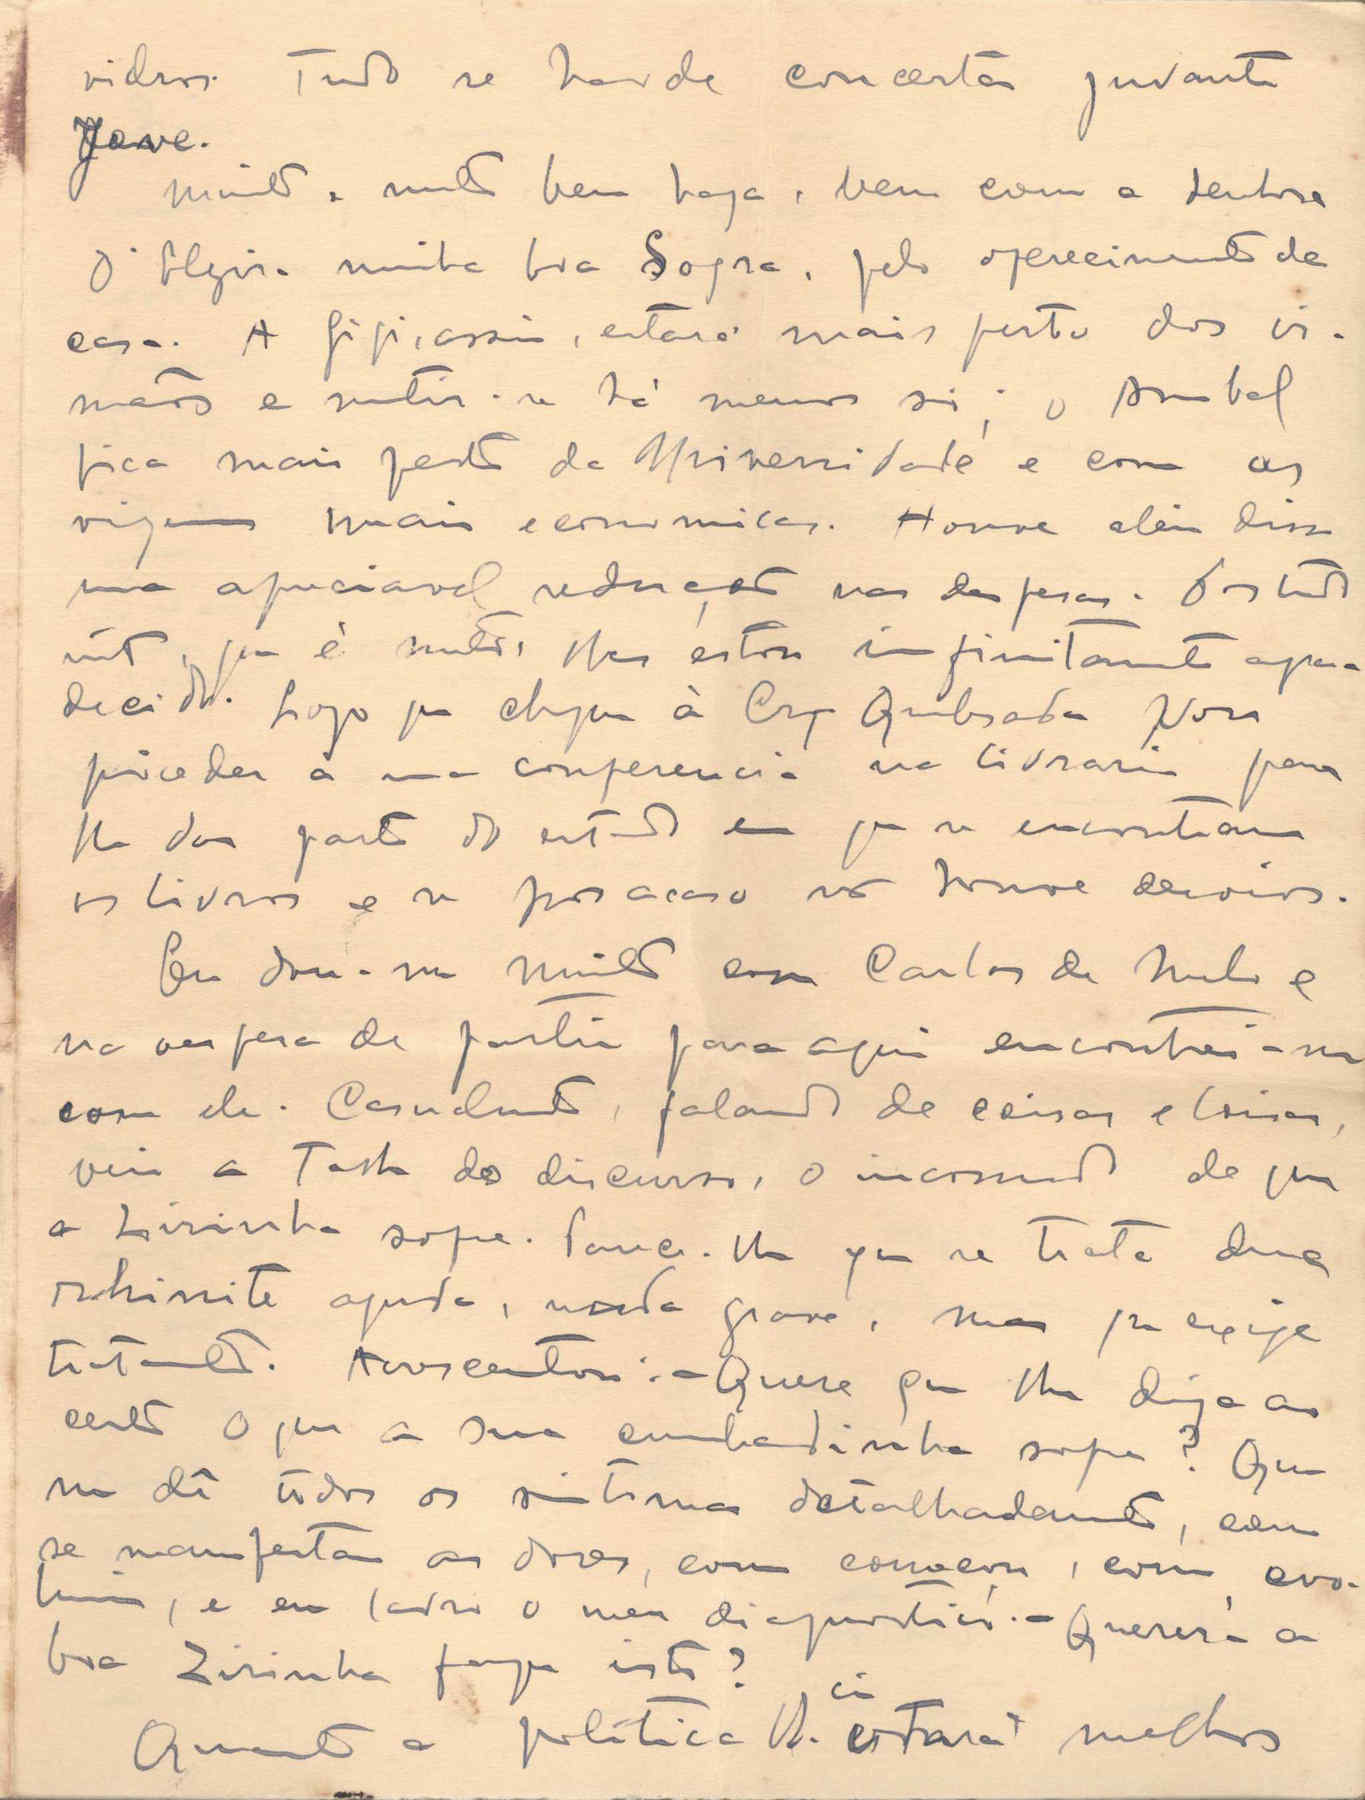 vidros. Tudo se hade concertar juvante
Jove.
Muito e muito bem haja, bem com a senhora
D. Elzira minha boa Sogra, pelo oferecimento da
casa. A Gigi, assim, estará mais perto dos ir-
mãos e sentir-se há menos só; o Anibal
fica mais perto da Universidade e com as
viagens mais economicas. Houve alêm disso
uma apreciavel redução nas despesas. Por tudo
isto, que é muito, lhes estou infinitamente agra-
decido. Logo que chegue à Cruz Quebrada vou
proceder a uma conferencia na livraria para
lhe dar parte do estado em que se encontram
os livros e se por acaso não houve desvios.
Eu dou-me muito com Carlos de Melo e
na vespera de partir para aqui encontrei-me
com ele. Casualmente, falando de coisas e loisas,
veio a talho do discurso, o incomodo de que
a Zirinha sofre. Parece-lhe que se trata duma
rhinite aguda, nada grave, mas que exige
tratamento. Acrescentou: - Quere que lhe diga ao
certo o que a sua cunhadinha sofre? Que
me dê todos os sintomas detalhadamente, como
se manifestam as dores, como começou, como evo-
luiu, e eu lavro o meu diagnostico. - Quererá a
boa Zirinha fazer isto?
Quanto a politica cá estará melhor